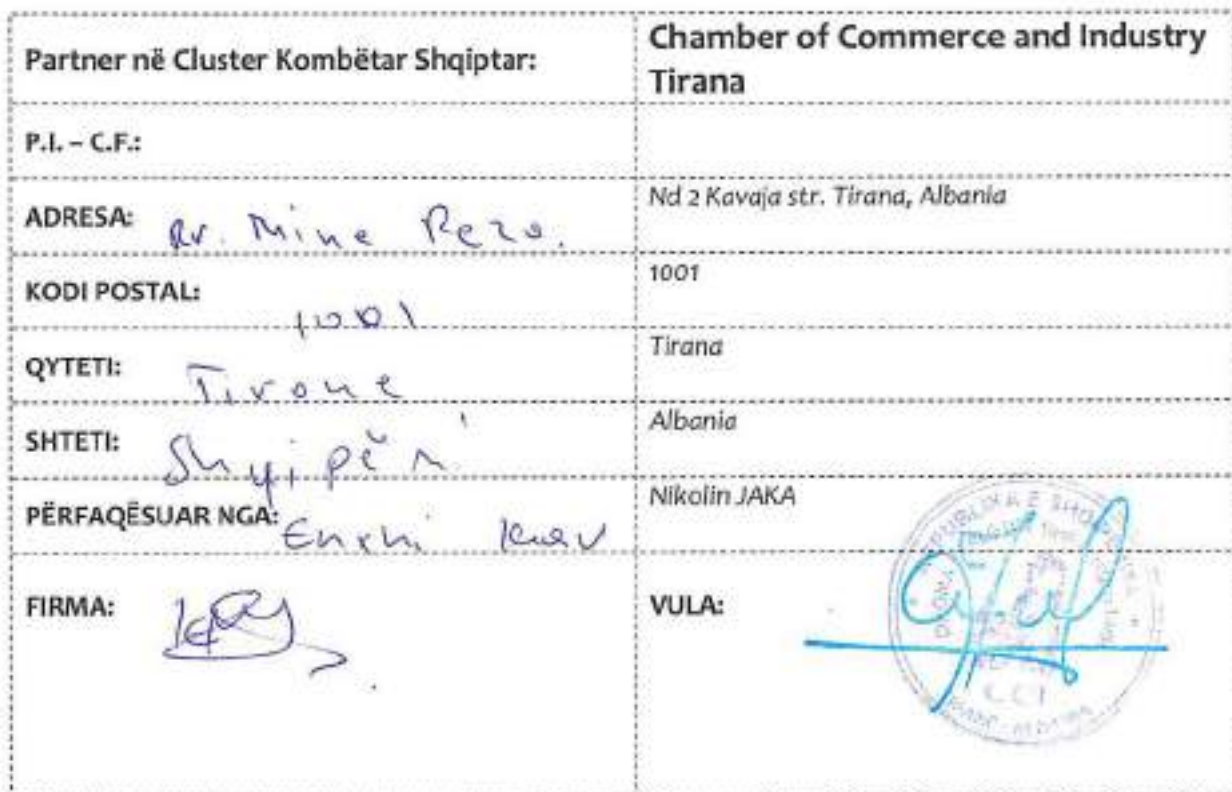 Partner në Cluster Kombëtar Shqiptar:
Chamber of Commerce and Industry
Tirana
P.I. – C.F.:
ADRESA: Rr. Mine Peza.
Nd 2 Kavaja str. Tirana, Albania
KODI POSTAL: 1001
1001
QYTETI: Tirane
Tirana
SHTETI: Shqipëri
Albania
PËRFAQËSUAR NGA:
Nikolin JAKA
FIRMA:
VULA: